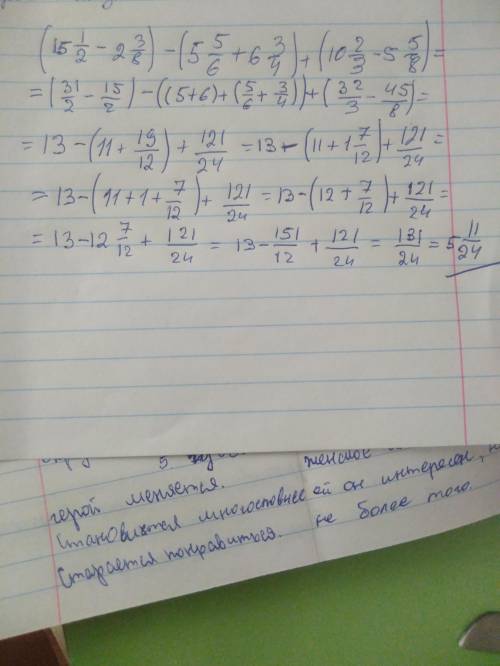 (15 1/2 − 2 3/8) − (5 5/6 + 6 3/4) + (10 2/3 − 5 5/8) =
= (31/2 − 15/2) − ((5+6) + (5/6 + 3/4)) + (32/3 − 45/8) =
= 13 − (11 + 19/12) + 121/24 = 13 − (11 + 1 7/12) + 121/24 =
= 13 − (11 + 1 + 7/12) + 121/24 = 13 − (12 + 7/12) + 121/24 =
= 13 − 12 7/12 + 121/24 = 13 − 151/12 + 121/24 = 131/24 = 5 11/24
женское
герой меняется.
Становится многословнее ей он интересен,
Старается понравиться. не более того.